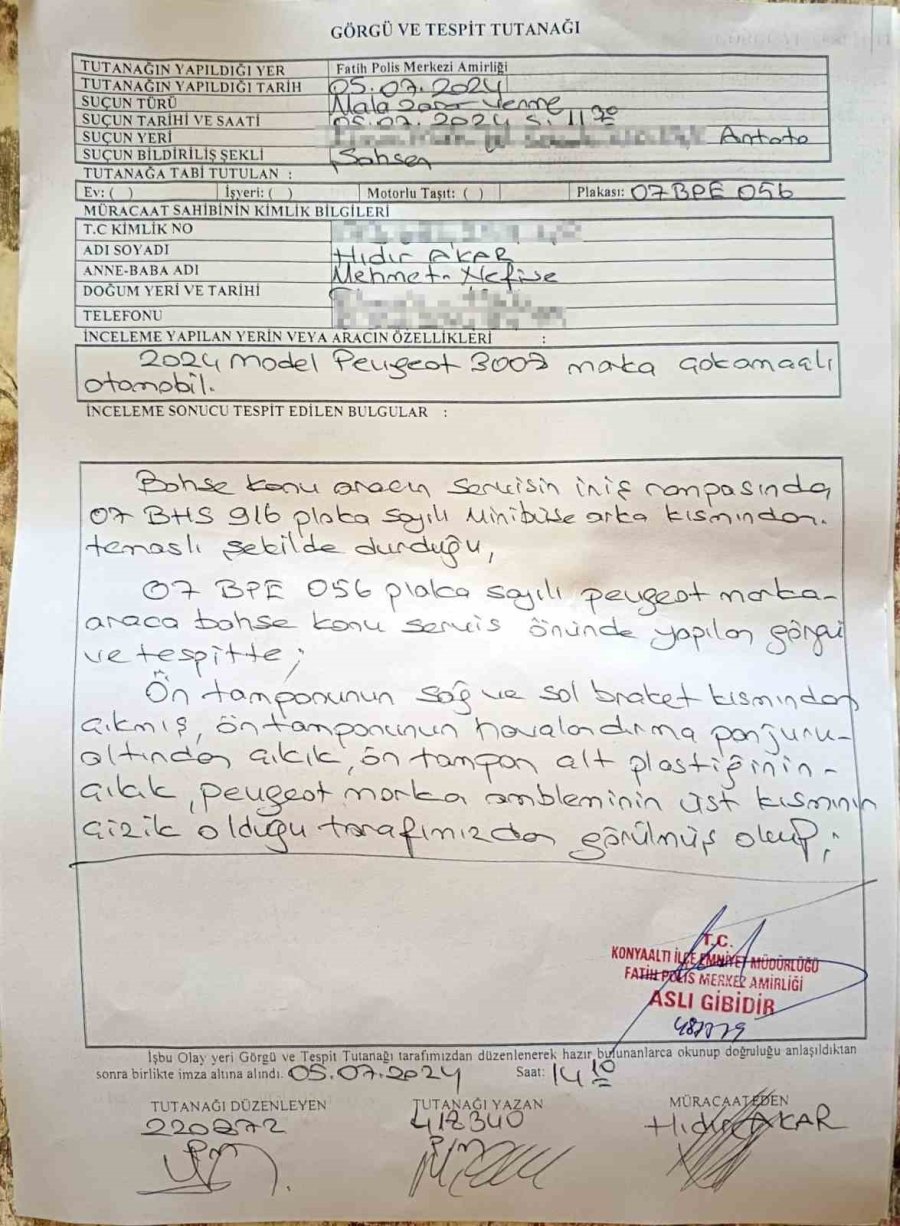 GÖRGÜ VE TESPİT TUTANAĞI
TUTANAĞIN YAPILDIĞI YER Fatih Polis Merkezi Amirliği
TUTANAĞIN YAPILDIĞI TARİH 05.07.2024
SUÇUN TÜRÜ Mala zarar verme
SUÇUN TARİHİ VE SAATİ 05.07.2024 S: 11 30
SUÇUN YERİ Antoto
SUÇUN BİLDİRİLİŞ ŞEKLİ Şahsen
TUTANAĞA TABİ TUTULAN :
Ev: ( ) İşyeri: ( ) Motorlu Taşıt: ( ) Plakası: 07 BPE 056
MÜRACAAT SAHİBİNİN KİMLİK BİLGİLERİ
T.C KİMLİK NO
ADI SOYADI Hıdır AKAR
ANNE-BABA ADI Mehmet - Nefise
DOĞUM YERİ VE TARİHİ
TELEFONU
İNCELEME YAPILAN YERİN VEYA ARACIN ÖZELLİKLERİ :
2024 Model Peugeot 3008 marka çakamaçlı
otomobil.
İNCELEME SONUCU TESPİT EDİLEN BULGULAR :
Bahse konu aracın servisin iniş rampasında
07 BHS 916 plaka sayılı Minibüse arka kısmından.
temaslı şekilde durduğu,
07 BPE 056 plaka sayılı peugeot marka-
araca bahse konu servis önünde yapılan görgü
ve tespitte;
Ön tamponunun sağ ve sol braket kısmından
çıkmış, ön tamponunun havalandırma panjuru-
altından çıkık, ön tampon alt plastiğinin-
çıkık, peugeot marka ambleminin üst kısmının
çizik olduğu tarafımızdan görülmüş olup;
T.C.
KONYAALTI İLÇE EMNİYET MÜDÜRLÜĞÜ
FATİH POLİS MERKEZ AMİRLİĞİ
ASLI GİBİDİR
İşbu Olay yeri Görgü ve Tespit Tutanağı tarafımızdan düzenlenerek hazır bulunanlarca okunup doğruluğu anlaşıldıktan
sonra birlikte imza altına alındı. 05.07.2024 Saat: 14 10
TUTANAĞI DÜZENLEYEN TUTANAĞI YAZAN MÜRACAAT EDEN
220272 412340 Hıdır AKAR